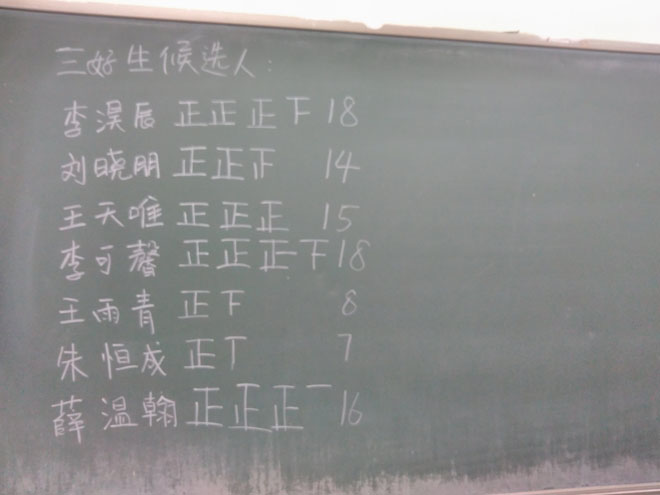 三好生候选人:
李淏辰 正正正下 18
刘晓朋 正正正 14
王天唯 正正正 15
李可馨 正正正下 18
王雨青 正下 8
朱恒成 正丅 7
薛温翰 正正正一 16